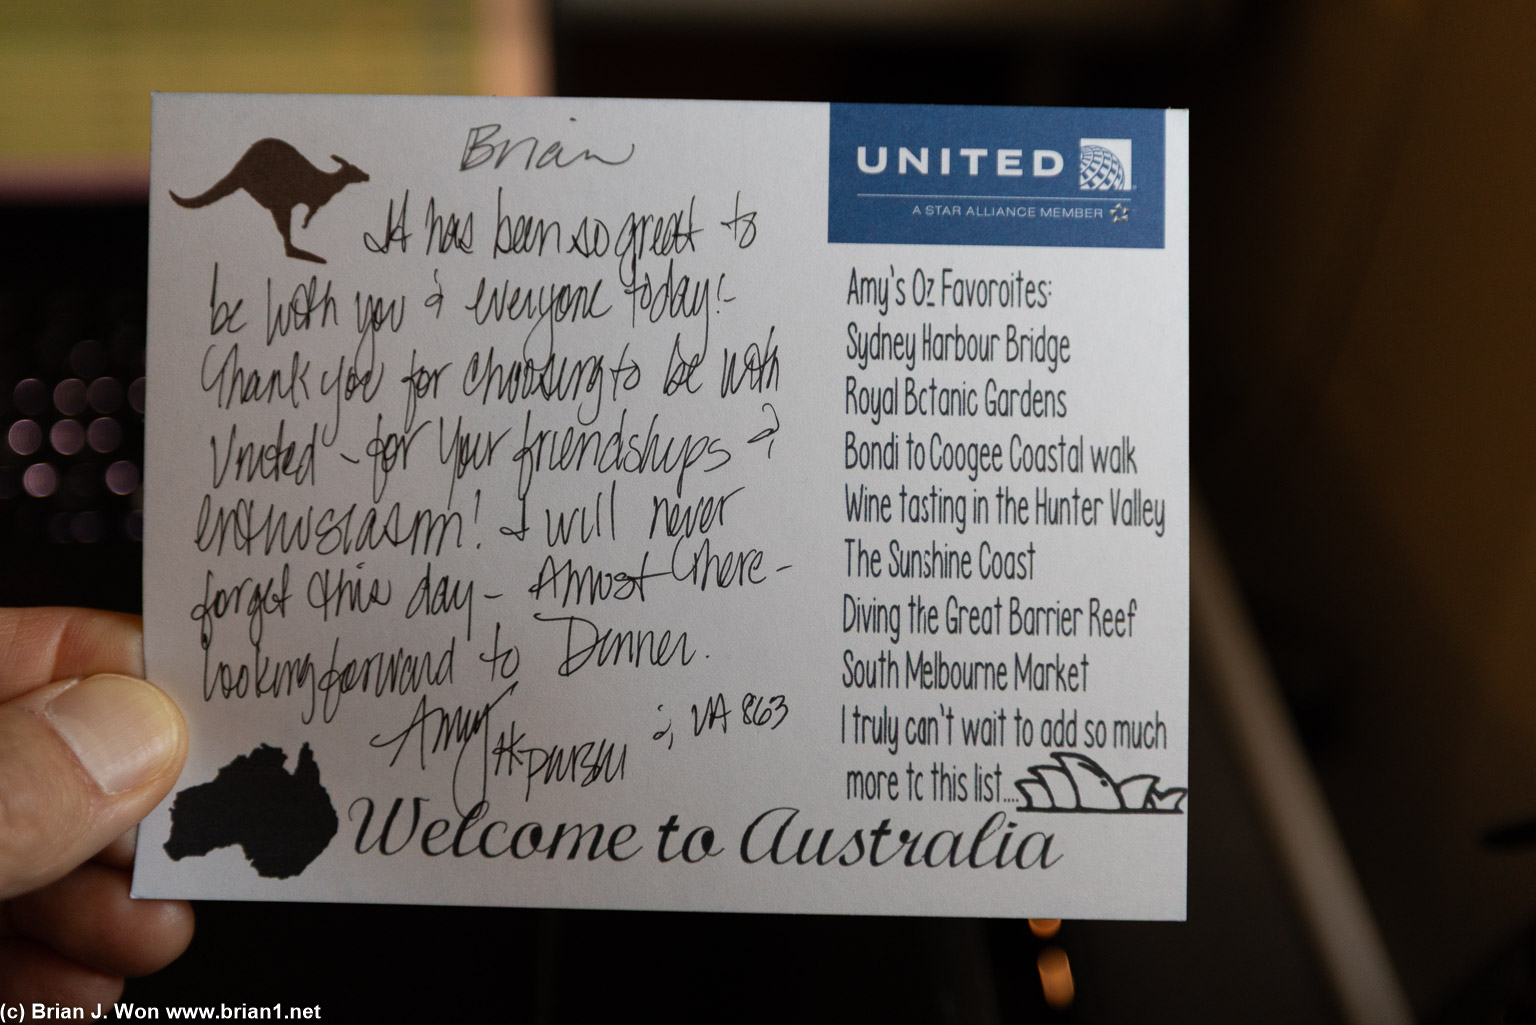 Brian
It has been so great to
be with you & everyone today!-
Thank you for choosing to be with
United - for your friendships &
enthusiasm! I will never
forget this day - Almost there -
looking forward to Dinner.
Amy
UA 863
UNITED
A STAR ALLIANCE MEMBER
Amy's Oz Favoroites:
Sydney Harbour Bridge
Royal Botanic Gardens
Bondi to Coogee Coastal walk
Wine tasting in the Hunter Valley
The Sunshine Coast
Diving the Great Barrier Reef
South Melbourne Market
I truly can't wait to add so much
more to this list....
Welcome to Australia
(c) Brian J. Won www.brian1.net